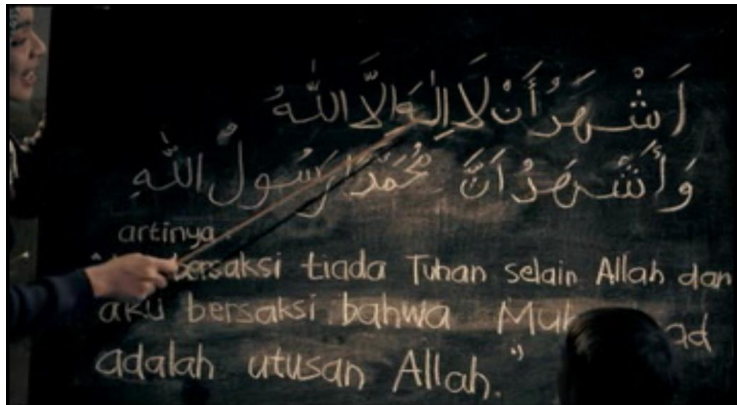 اَشْهَدُ أَنْ لَا إِلٰهَ اِلَّا اللّٰهُ
وَأَشْهَدُ اَنَّ مُحَمَّدًا رَسُولُ اللّٰهِ
artinya
bersaksi tiada Tuhan selain Allah dan
aku bersaksi bahwa
adalah utusan Allah."